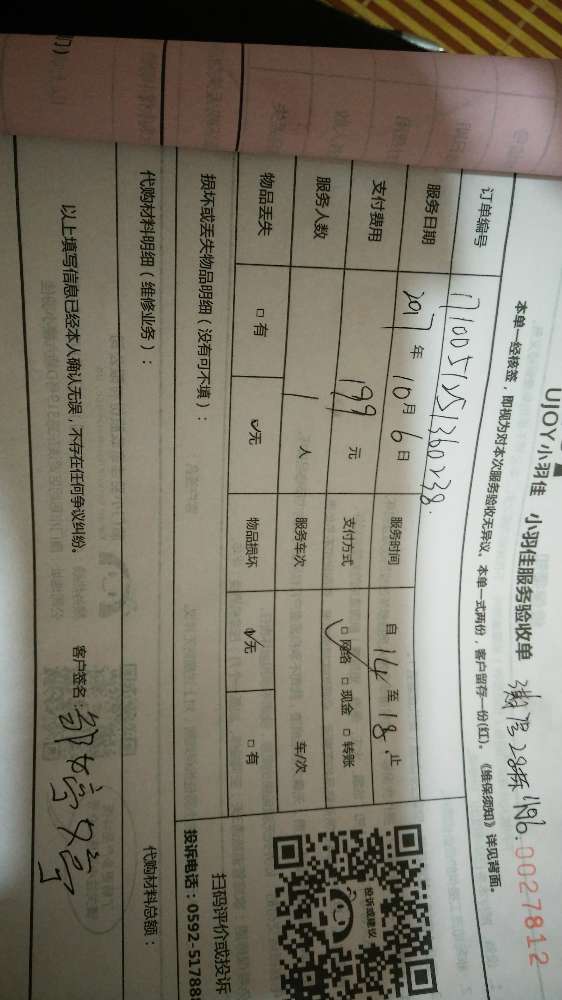 UJOY小羽佳 小羽佳服务验收单
No.0027812
本单一经核签，即视为对本次服务验收无异议。本单一式两份，客户留存一份(红)。《维保须知》详见背面。
订单编号 1710051251360238
服务日期 2017年10月6日 服务时间 自14至18止
支付费用 199元 支付方式 网络 现金 转账
服务人数 1人 服务车次 车/次
物品丢失 有 无 物品损坏 无 有
损坏或丢失物品明细（没有可不填）：
扫码评价或投诉
投诉或建议
投诉电话：0592-51788
代购材料明细（维修业务）： 代购材料总额：
以上填写信息已经本人确认无误，不存在任何争议纠纷。 客户签名：